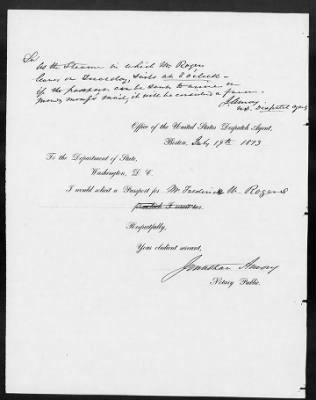 Sir
As the Steamer in which Mr. Rogers
leaves on Tuesday, sails at
If the passport can be sent to arrive on
Monday morng's mail, it will be considered a favor.
J. Amory
U.S. Dispatch Agent
Office of the United States Dispatch Agent,
Boston, July 19th 1873
To the Department of State,
Washington, D. C.
I would solicit a Passport for Mr Frederick W. Rogers
Respectfully,
Your obedient servant,
Jonathan Amory
Notary Public.